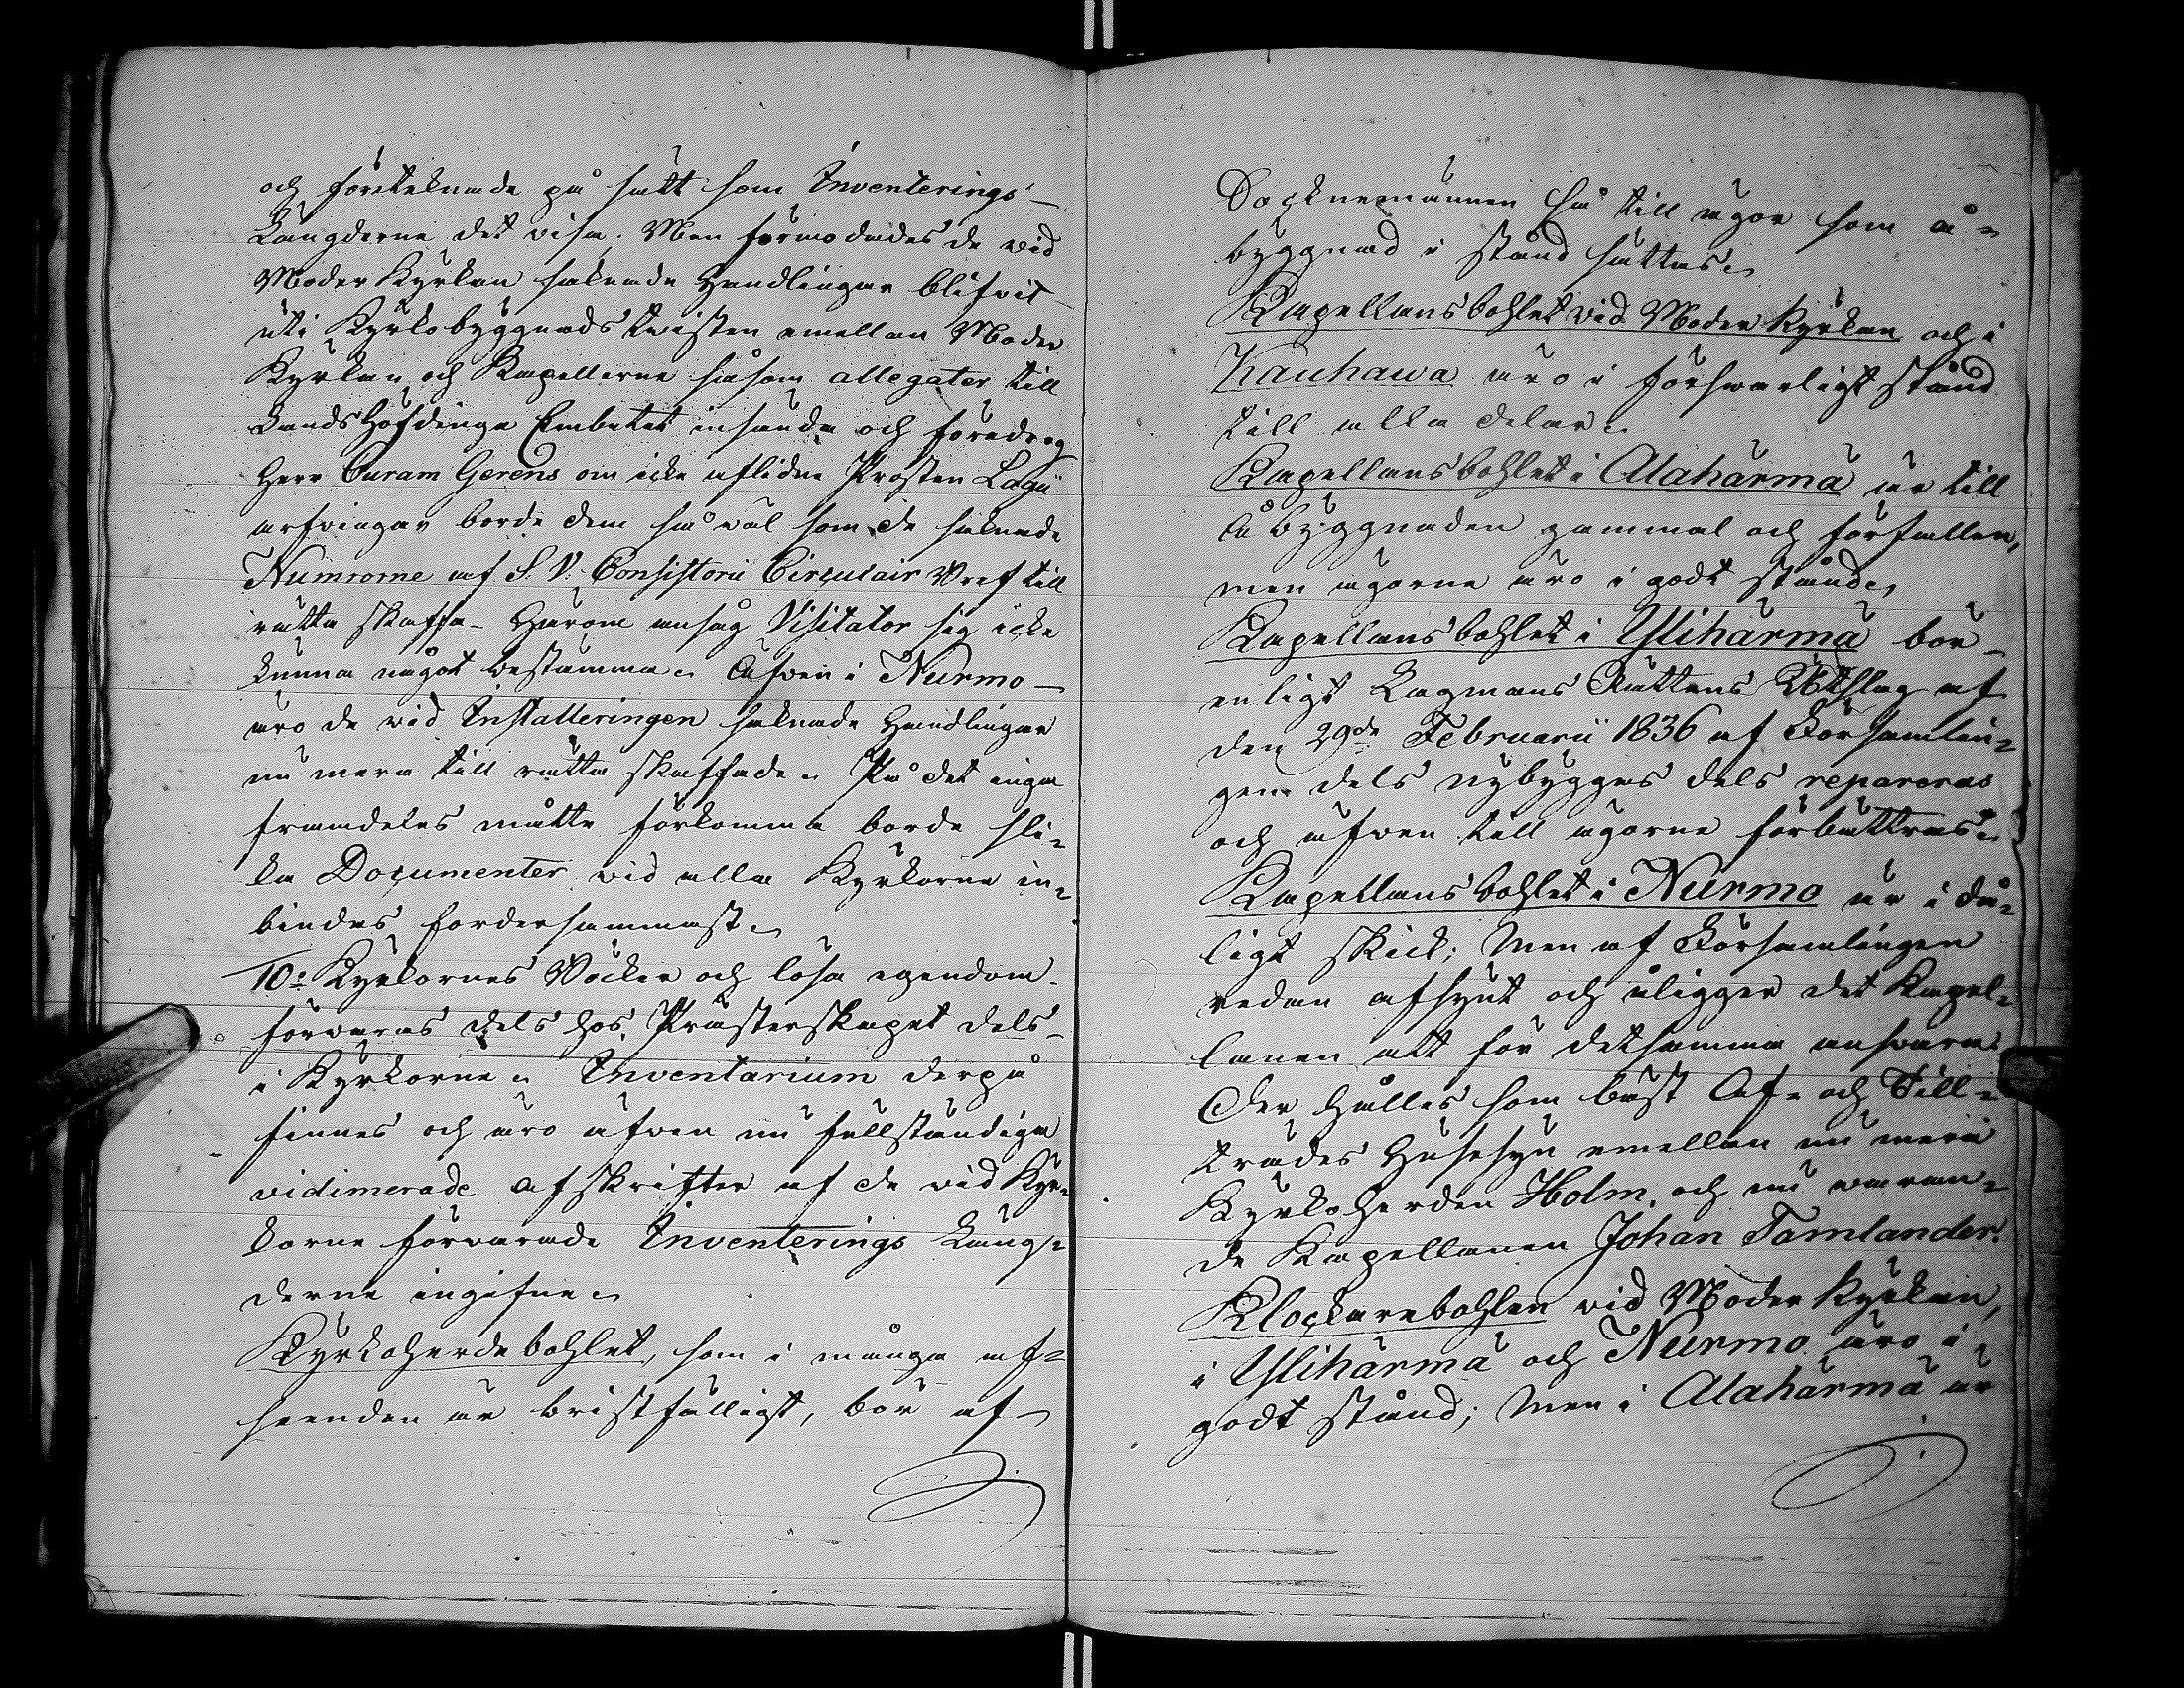 och förteknade på sätt som Inventerings-
Längderne det visa. Men förmodades de vid
Moder Kyrkan saknade Handlingar blifvit
uti Kyrkobyggnads twisten emellan Moder
Kyrkan och Kapellerne såsom allegater till
LandsHöfdinge Embetet insända och föredrog
Herr Curam Gerens om icke aflidne Prosten Lagii
arfvingar borde dem så väl som de saknade
Numrorne af S. V. Consistorii Circulair Bref till
rätta skaffa. Härom ansåg Visitator sig icke
kunna något bestämma. Äfven i Nurmo
äro de vid Installeringen saknade Handlingar
nu mera till rätta skaffade. På det inga
framdeles måtte förkomma borde sli-
ka Documenter vid alla Kyrkorne in-
bindas fordersammast.
10:o Kyrkornes Böcker och lösa egendom
förvaras dels hos Prästerskapet dels
i Kyrkorne. Inventarium derpå
finnes och äro äfven nu fullständiga
vidimerade afskrifter af de vid Kyr-
korne förvarade Inventerings Läng-
derne ingifne.
Kyrkoherdebohlet, som i många af-
seenden är bristfälligt, bör af
Socknemännen så till ägor som å-
byggnad i stånd sättas.
Kapellansbohlet vid Moder Kyrkan och i
Kauhawa äro i försvarligt stånd
till alla delar.
Kapellansbohlet i Alahärmä är till
Åbyggnaden gammal och förfallen,
men ägorne äro i godt stånd.
Kapellansbohlet i Ylihärmä bör
enligt Lagmans Rättens Utslag af
den 29de Februarii 1836 af Församlin-
gen dels nybyggas dels repareras
och äfven till ägorne förbättras.
Kapellansbohlet i Nurmo är i då-
ligt skick; Men af Församlingen
redan afsynt och åligger det Kapel-
lanen att för detsamma ansvara.
Der hålles som bäst Af- och Till-
trädes Husesyn emellan nu mera
Kyrkoherden Holm, och nu waran-
de Kapellanen Johan Tamlander.
Klockarebohlen vid Moder Kyrkan,
i Ylihärmä och Nurmo äro i
godt stånd; Men i Alahärmä är